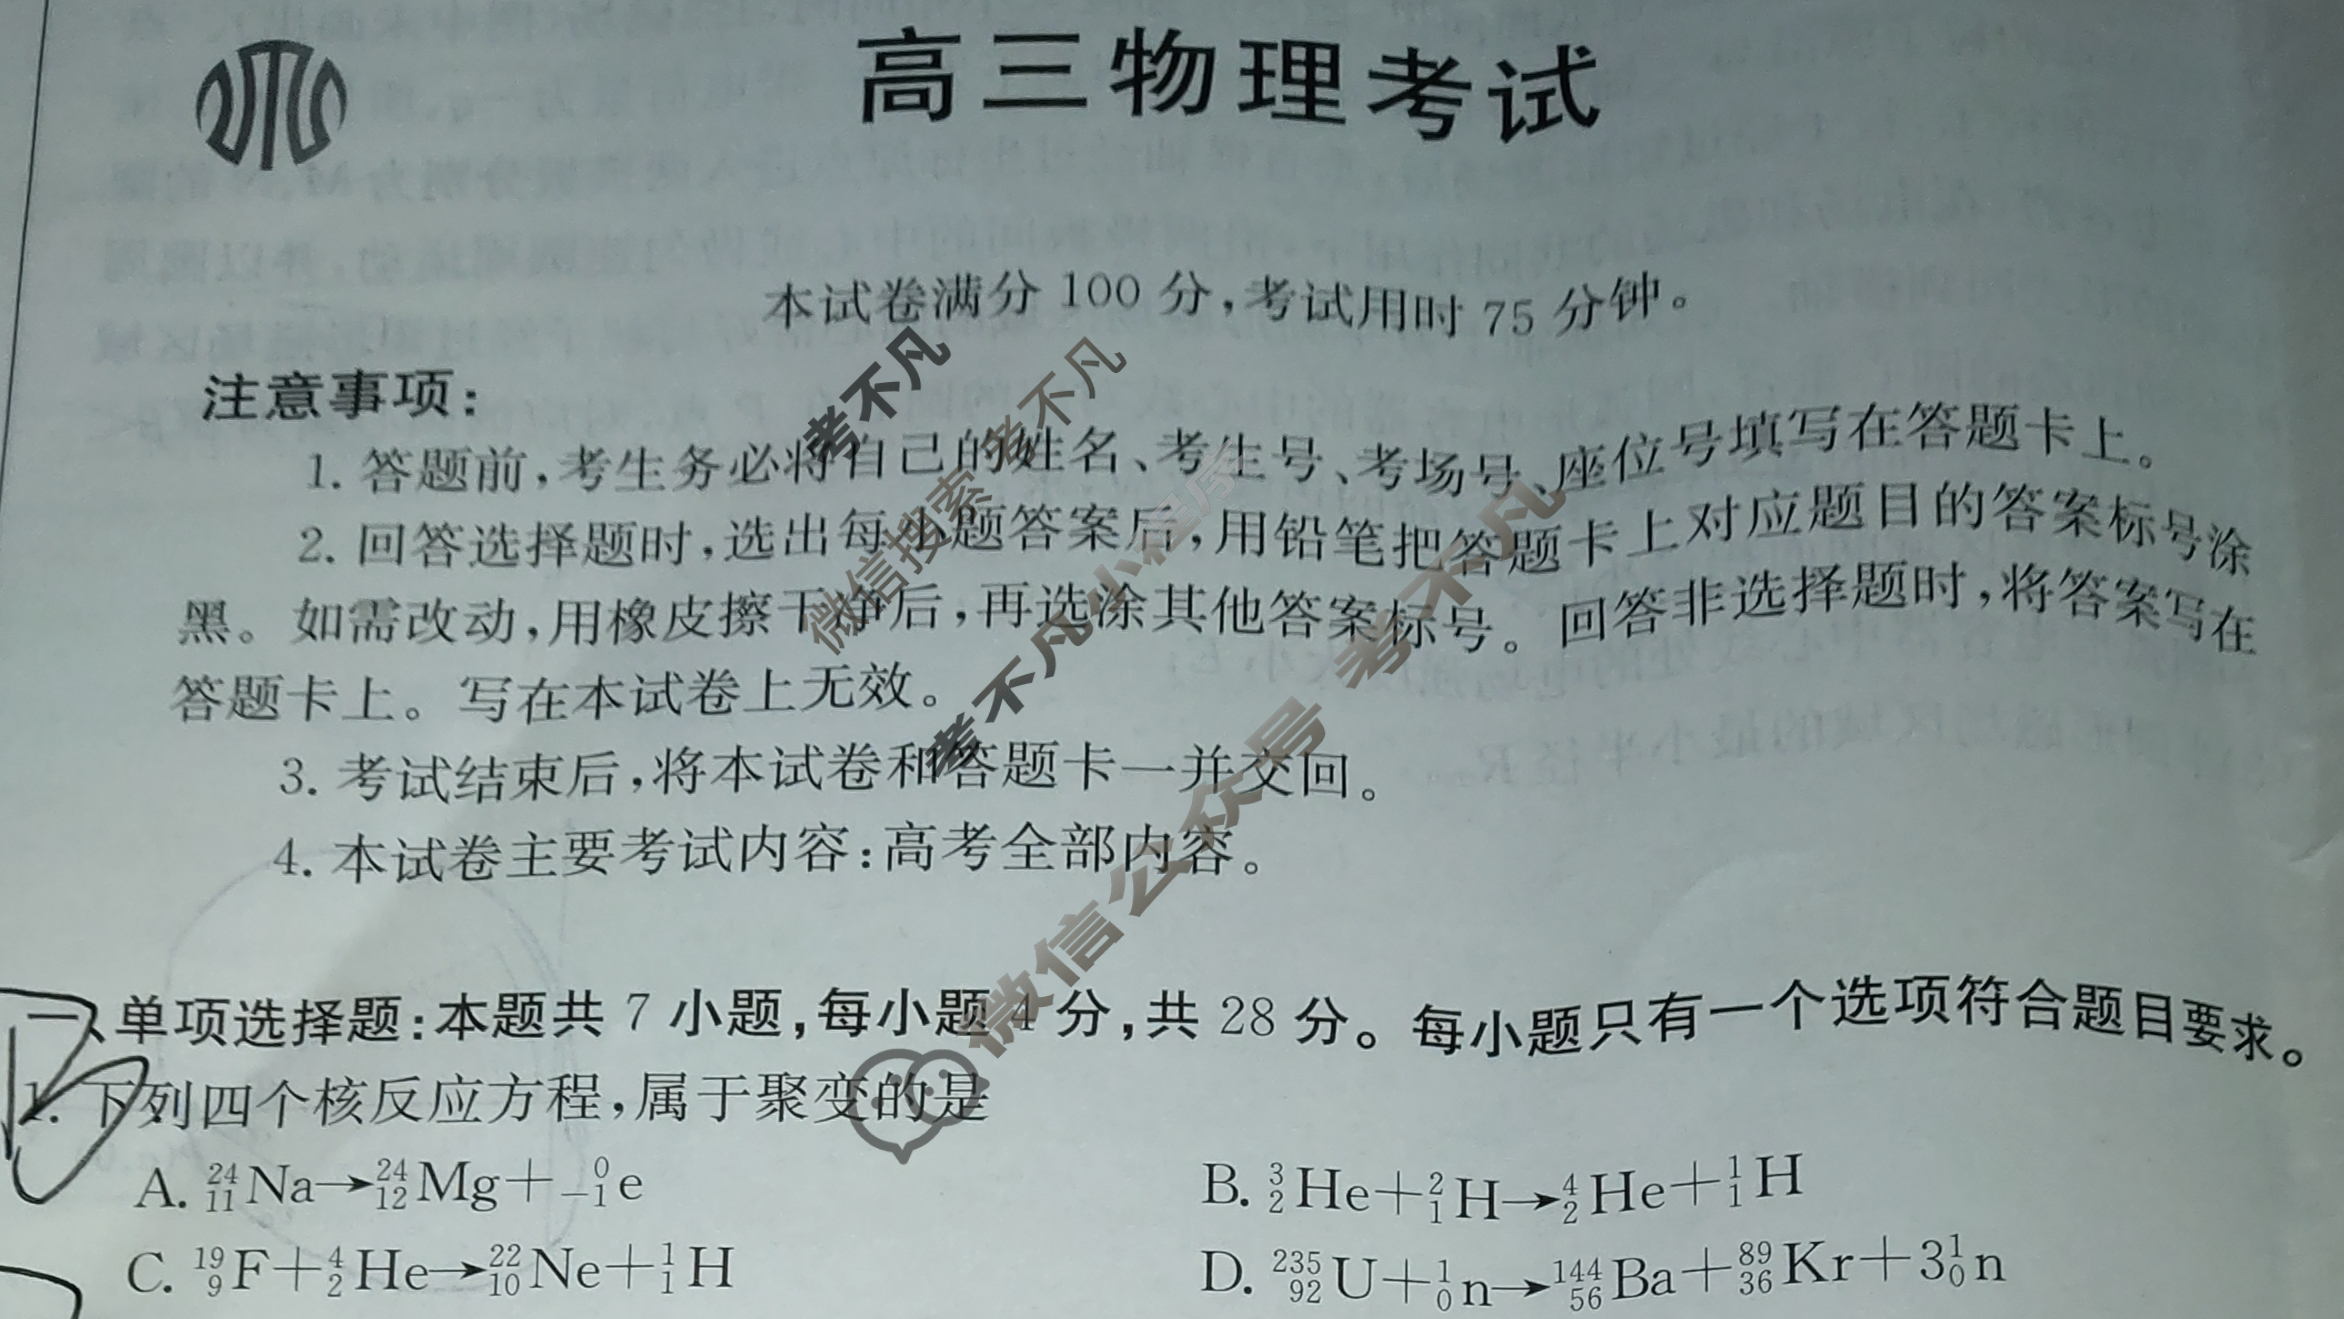 高三物理考试
本试卷满分 100 分,考试用时 75 分钟。
注意事项:
1. 答题前,考生务必将自己的姓名、考生号、考场号、座位号填写在答题卡上。
2. 回答选择题时,选出每小题答案后,用铅笔把答题卡上对应题目的答案标号涂
黑。如需改动,用橡皮擦干净后,再选涂其他答案标号。回答非选择题时,将答案写在
答题卡上。写在本试卷上无效。
3. 考试结束后,将本试卷和答题卡一并交回。
4. 本试卷主要考试内容:高考全部内容。
一、单项选择题:本题共 7 小题,每小题 4 分,共 28 分。每小题只有一个选项符合题目要求。
1. 下列四个核反应方程,属于聚变的是
A. ²⁴₁₁Na→²⁴₁₂Mg+⁰₋₁e
B. ³₂He+²₁H→⁴₂He+¹₁H
C. ¹⁹₉F+⁴₂He→²²₁₀Ne+¹₁H
D. ²³⁵₉₂U+¹₀n→¹⁴⁴₅₆Ba+⁸⁹₃₆Kr+3¹₀n
考不凡
微信搜索 考不凡
考不凡小程序
微信公众号 考不凡